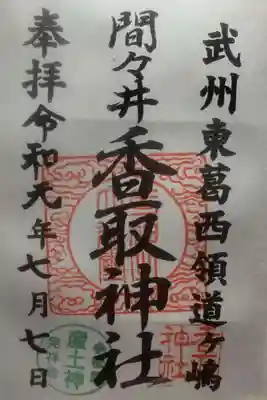 武州東葛西領道ヶ嶋
間々井香取神社
奉拝令和元年七月七日
産土神